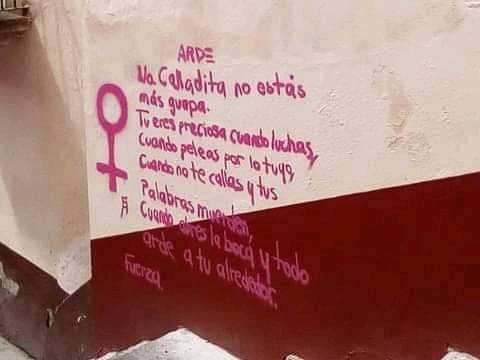 ARDE
No Calladita no estás
más guapa.
Tu eres preciosa cuando luchas,
Cuando peleas por lo tuyo,
Cuando no te callas y tus
Palabras muerden,
Cuando abres la boca y todo
arde a tu alrededor.
Fuerza